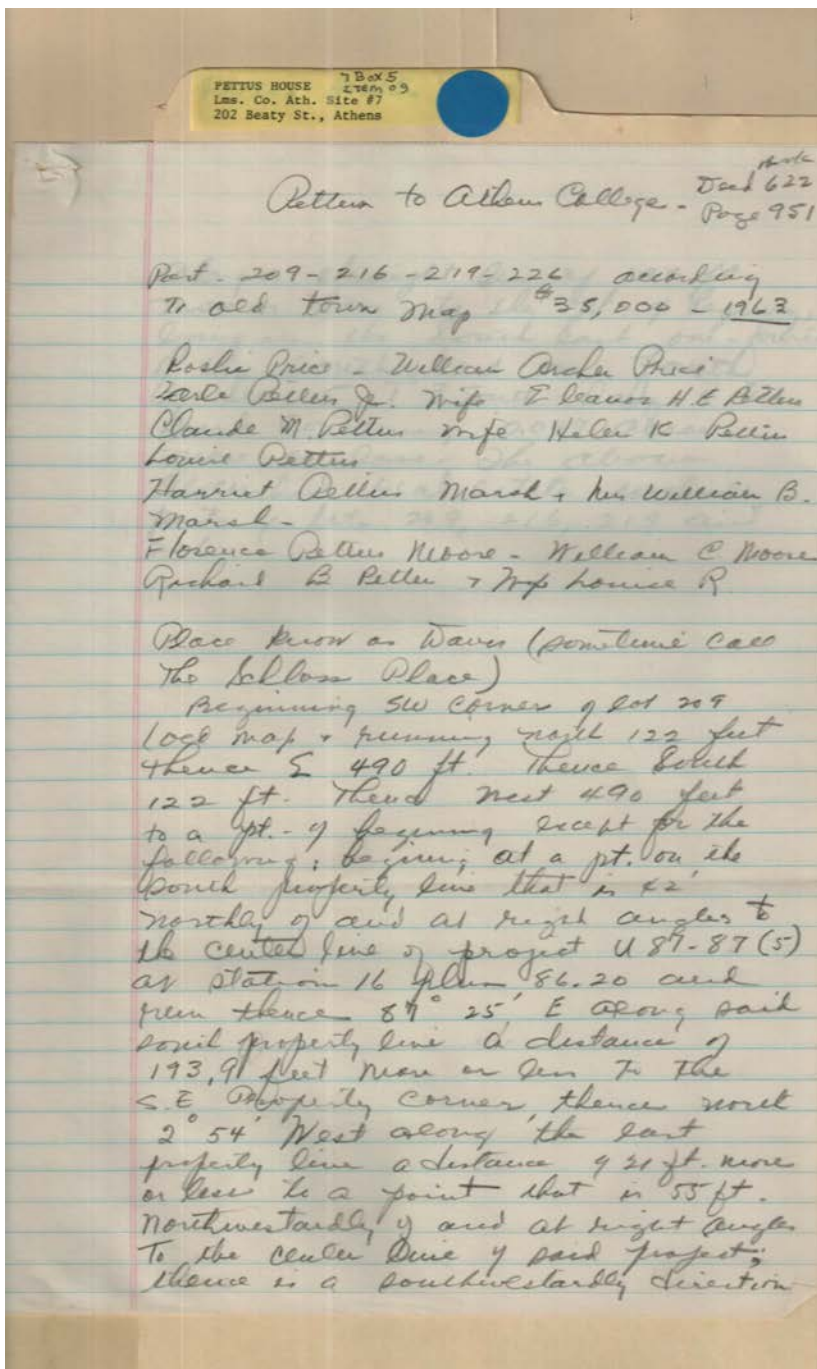 7 Box 5
PETTUS HOUSE Item 09
Lms. Co. Ath. Site #7
202 Beaty St., Athens
Book
Pettus to Athens College - Deed 622
Page 951
Part - 209 - 216 - 219 - 226 according
To old town map $35,000 - 1963
Price - William Archer Price
Pettus Jr. Wife Eleanor H.E Pettus
Claude M. Pettus wife Helen K Pettus
Louise Pettus
Harriet Pettus Marsh + William B.
Marsh -
Florence Pettus Moore - William C Moore
Richard B Pettus + Wife Louise R.
Place know as (sometime call
The Schloss Place)
Beginning SW Corner of lot 209
map + running north 122 feet
thence E 490 ft. Thence South
122 ft. Thence West 490 feet
to a pt. of beginning except for the
following; begining at a pt. on the
south property line that is 42'
northly of and at right angles to
the center line of project U 87-87 (5)
at station 16 plus 86.20 and
run thence 87° 25' E along said
south property line a distance of
193,91 feet more or less To The
S.E Property Corner, thence north
2° 54' West along the east
property line a distance of 21 ft. more
or less to a point that is 55 ft.
Northwestardly of and at right angles
To the center line of said project;
thence is a southwestardly direction